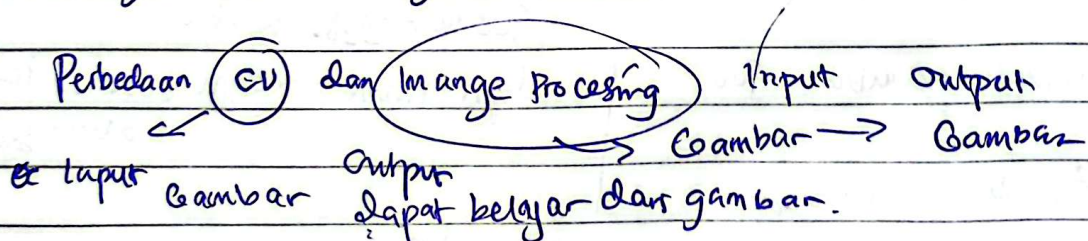 Perbedaan CV dan Imange Procesing Input Output
Gambar → Gambar
Input Gambar Output
dapat belajar dari gambar.